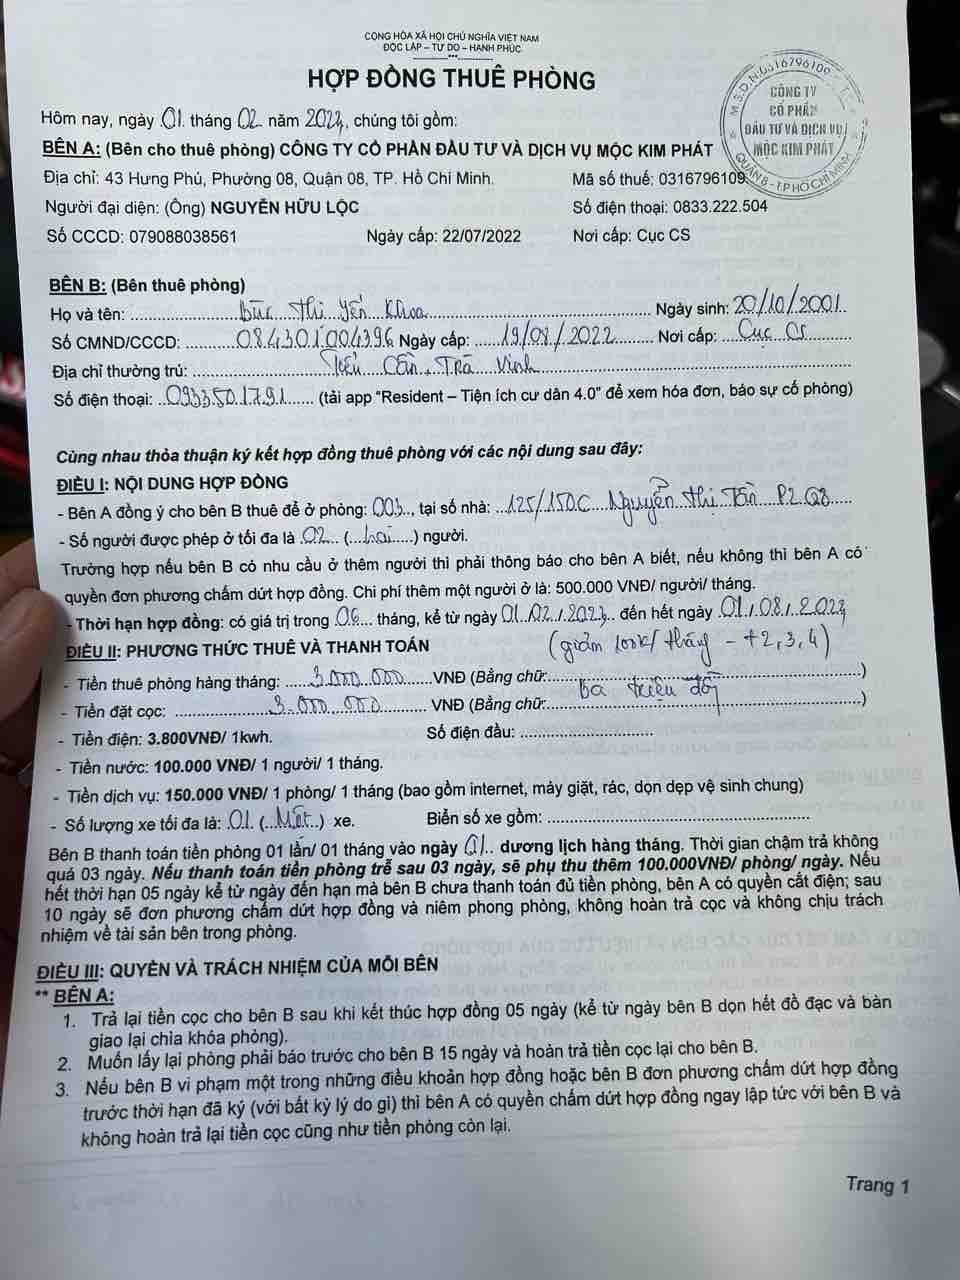 CỘNG HÒA XÃ HỘI CHỦ NGHĨA VIỆT NAM
ĐỘC LẬP – TỰ DO – HẠNH PHÚC
HỢP ĐỒNG THUÊ PHÒNG
M.S.D.N:0316796109
CÔNG TY
CỔ PHẦN
ĐẦU TƯ VÀ DỊCH VỤ
MỘC KIM PHÁT
QUẬN 8 - T.P HỒ CHÍ MINH
Hôm nay, ngày 01. tháng 02. năm 2023, chúng tôi gồm:
BÊN A: (Bên cho thuê phòng) CÔNG TY CỔ PHẦN ĐẦU TƯ VÀ DỊCH VỤ MỘC KIM PHÁT
Địa chỉ: 43 Hưng Phú, Phường 08, Quận 08, TP. Hồ Chí Minh. Mã số thuế: 0316796109
Người đại diện: (Ông) NGUYỄN HỮU LỘC Số điện thoại: 0833.222.504
Số CCCD: 079088038561 Ngày cấp: 22/07/2022 Nơi cấp: Cục CS
BÊN B: (Bên thuê phòng)
Họ và tên: Thị Yến Khoa Ngày sinh: 20/10/2001
Số CMND/CCCD: 084301004396 Ngày cấp: 19/08/2022 Nơi cấp: Cục CS
Địa chỉ thường trú: Tiểu Cần, Trà Vinh
Số điện thoại: 0933501791 (tải app "Resident – Tiện ích cư dân 4.0" để xem hóa đơn, báo sự cố phòng)
Cùng nhau thỏa thuận ký kết hợp đồng thuê phòng với các nội dung sau đây:
ĐIỀU I: NỘI DUNG HỢP ĐỒNG
- Bên A đồng ý cho bên B thuê để ở phòng: 003.., tại số nhà: 125/150C Nguyễn Thị Tần P2 Q8
- Số người được phép ở tối đa là 02 (hai) người.
Trường hợp nếu bên B có nhu cầu ở thêm người thì phải thông báo cho bên A biết, nếu không thì bên A có
quyền đơn phương chấm dứt hợp đồng. Chi phí thêm một người ở là: 500.000 VNĐ/ người/ tháng.
- Thời hạn hợp đồng: có giá trị trong 06 tháng, kể từ ngày 01.02.2023 đến hết ngày 01.08.2023
ĐIỀU II: PHƯƠNG THỨC THUÊ VÀ THANH TOÁN (giảm 100k/tháng - t2,3,4)
- Tiền thuê phòng hàng tháng: 3.000.000 VNĐ (Bằng chữ: )
- Tiền đặt cọc: 3.000.000 VNĐ (Bằng chữ: ba triệu đồng)
- Tiền điện: 3.800VNĐ/ 1kwh. Số điện đầu:
- Tiền nước: 100.000 VNĐ/ 1 người/ 1 tháng.
- Tiền dịch vụ: 150.000 VNĐ/ 1 phòng/ 1 tháng (bao gồm internet, máy giặt, rác, dọn dẹp vệ sinh chung)
- Số lượng xe tối đa là: 01 (Một) xe. Biển số xe gồm:
Bên B thanh toán tiền phòng 01 lần/ 01 tháng vào ngày 01.. dương lịch hàng tháng. Thời gian chậm trả không
quá 03 ngày. Nếu thanh toán tiền phòng trễ sau 03 ngày, sẽ phụ thu thêm 100.000VNĐ/ phòng/ ngày. Nếu
hết thời hạn 05 ngày kể từ ngày đến hạn mà bên B chưa thanh toán đủ tiền phòng, bên A có quyền cắt điện; sau
10 ngày sẽ đơn phương chấm dứt hợp đồng và niêm phong phòng, không hoàn trả cọc và không chịu trách
nhiệm về tài sản bên trong phòng.
ĐIỀU III: QUYỀN VÀ TRÁCH NHIỆM CỦA MỖI BÊN
** BÊN A:
1. Trả lại tiền cọc cho bên B sau khi kết thúc hợp đồng 05 ngày (kể từ ngày bên B dọn hết đồ đạc và bàn
giao lại chìa khóa phòng).
2. Muốn lấy lại phòng phải báo trước cho bên B 15 ngày và hoàn trả tiền cọc lại cho bên B.
3. Nếu bên B vi phạm một trong những điều khoản hợp đồng hoặc bên B đơn phương chấm dứt hợp đồng
trước thời hạn đã ký (với bất kỳ lý do gì) thì bên A có quyền chấm dứt hợp đồng ngay lập tức với bên B và
không hoàn trả lại tiền cọc cũng như tiền phòng còn lại.
Trang 1